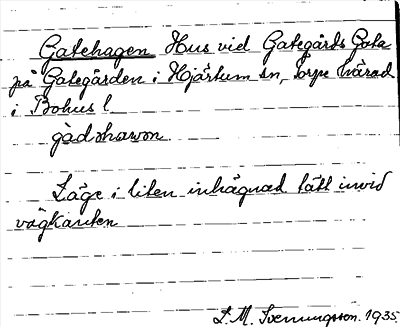 Gatehagen Hus vid Gategårds Gata
på Gategården i Hjärtum sn, Torpe härad
i Bohus l.
Läge i liten inhägnad tätt invid
vägkanten
S. M. Svenungsson. 1935